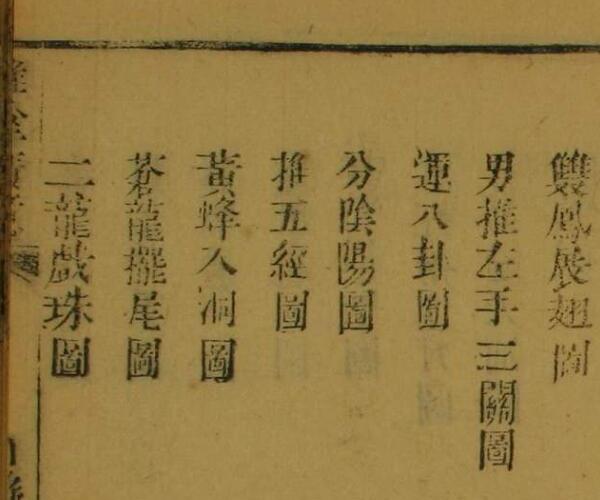 雙鳳展翅圖
男推左手三關圖
運八卦圖
分陰陽圖
推五經圖
黃蜂入洞圖
蒼龍擺尾圖
二龍戲珠圖